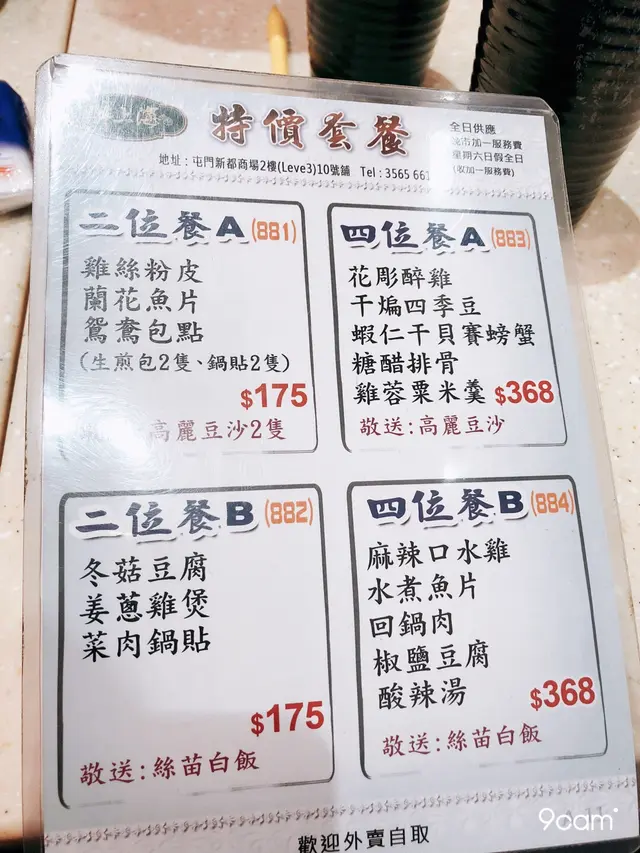 特價套餐
全日供應
晚市加一服務費
星期六日假全日
(收加一服務費)
地址：屯門新都商場2樓(Leve3)10號舖 Tel：3565 661
二位餐A(881)
雞絲粉皮
蘭花魚片
鴛鴦包點
(生煎包2隻、鍋貼2隻)
$175
高麗豆沙2隻
四位餐A(883)
花彫醉雞
干煸四季豆
蝦仁干貝賽螃蟹
糖醋排骨
雞蓉粟米羹 $368
敬送：高麗豆沙
二位餐B(882)
冬菇豆腐
姜蔥雞煲
菜肉鍋貼
$175
敬送：絲苗白飯
四位餐B(884)
麻辣口水雞
水煮魚片
回鍋肉
椒鹽豆腐
酸辣湯 $368
敬送：絲苗白飯
歡迎外賣自取
9cam